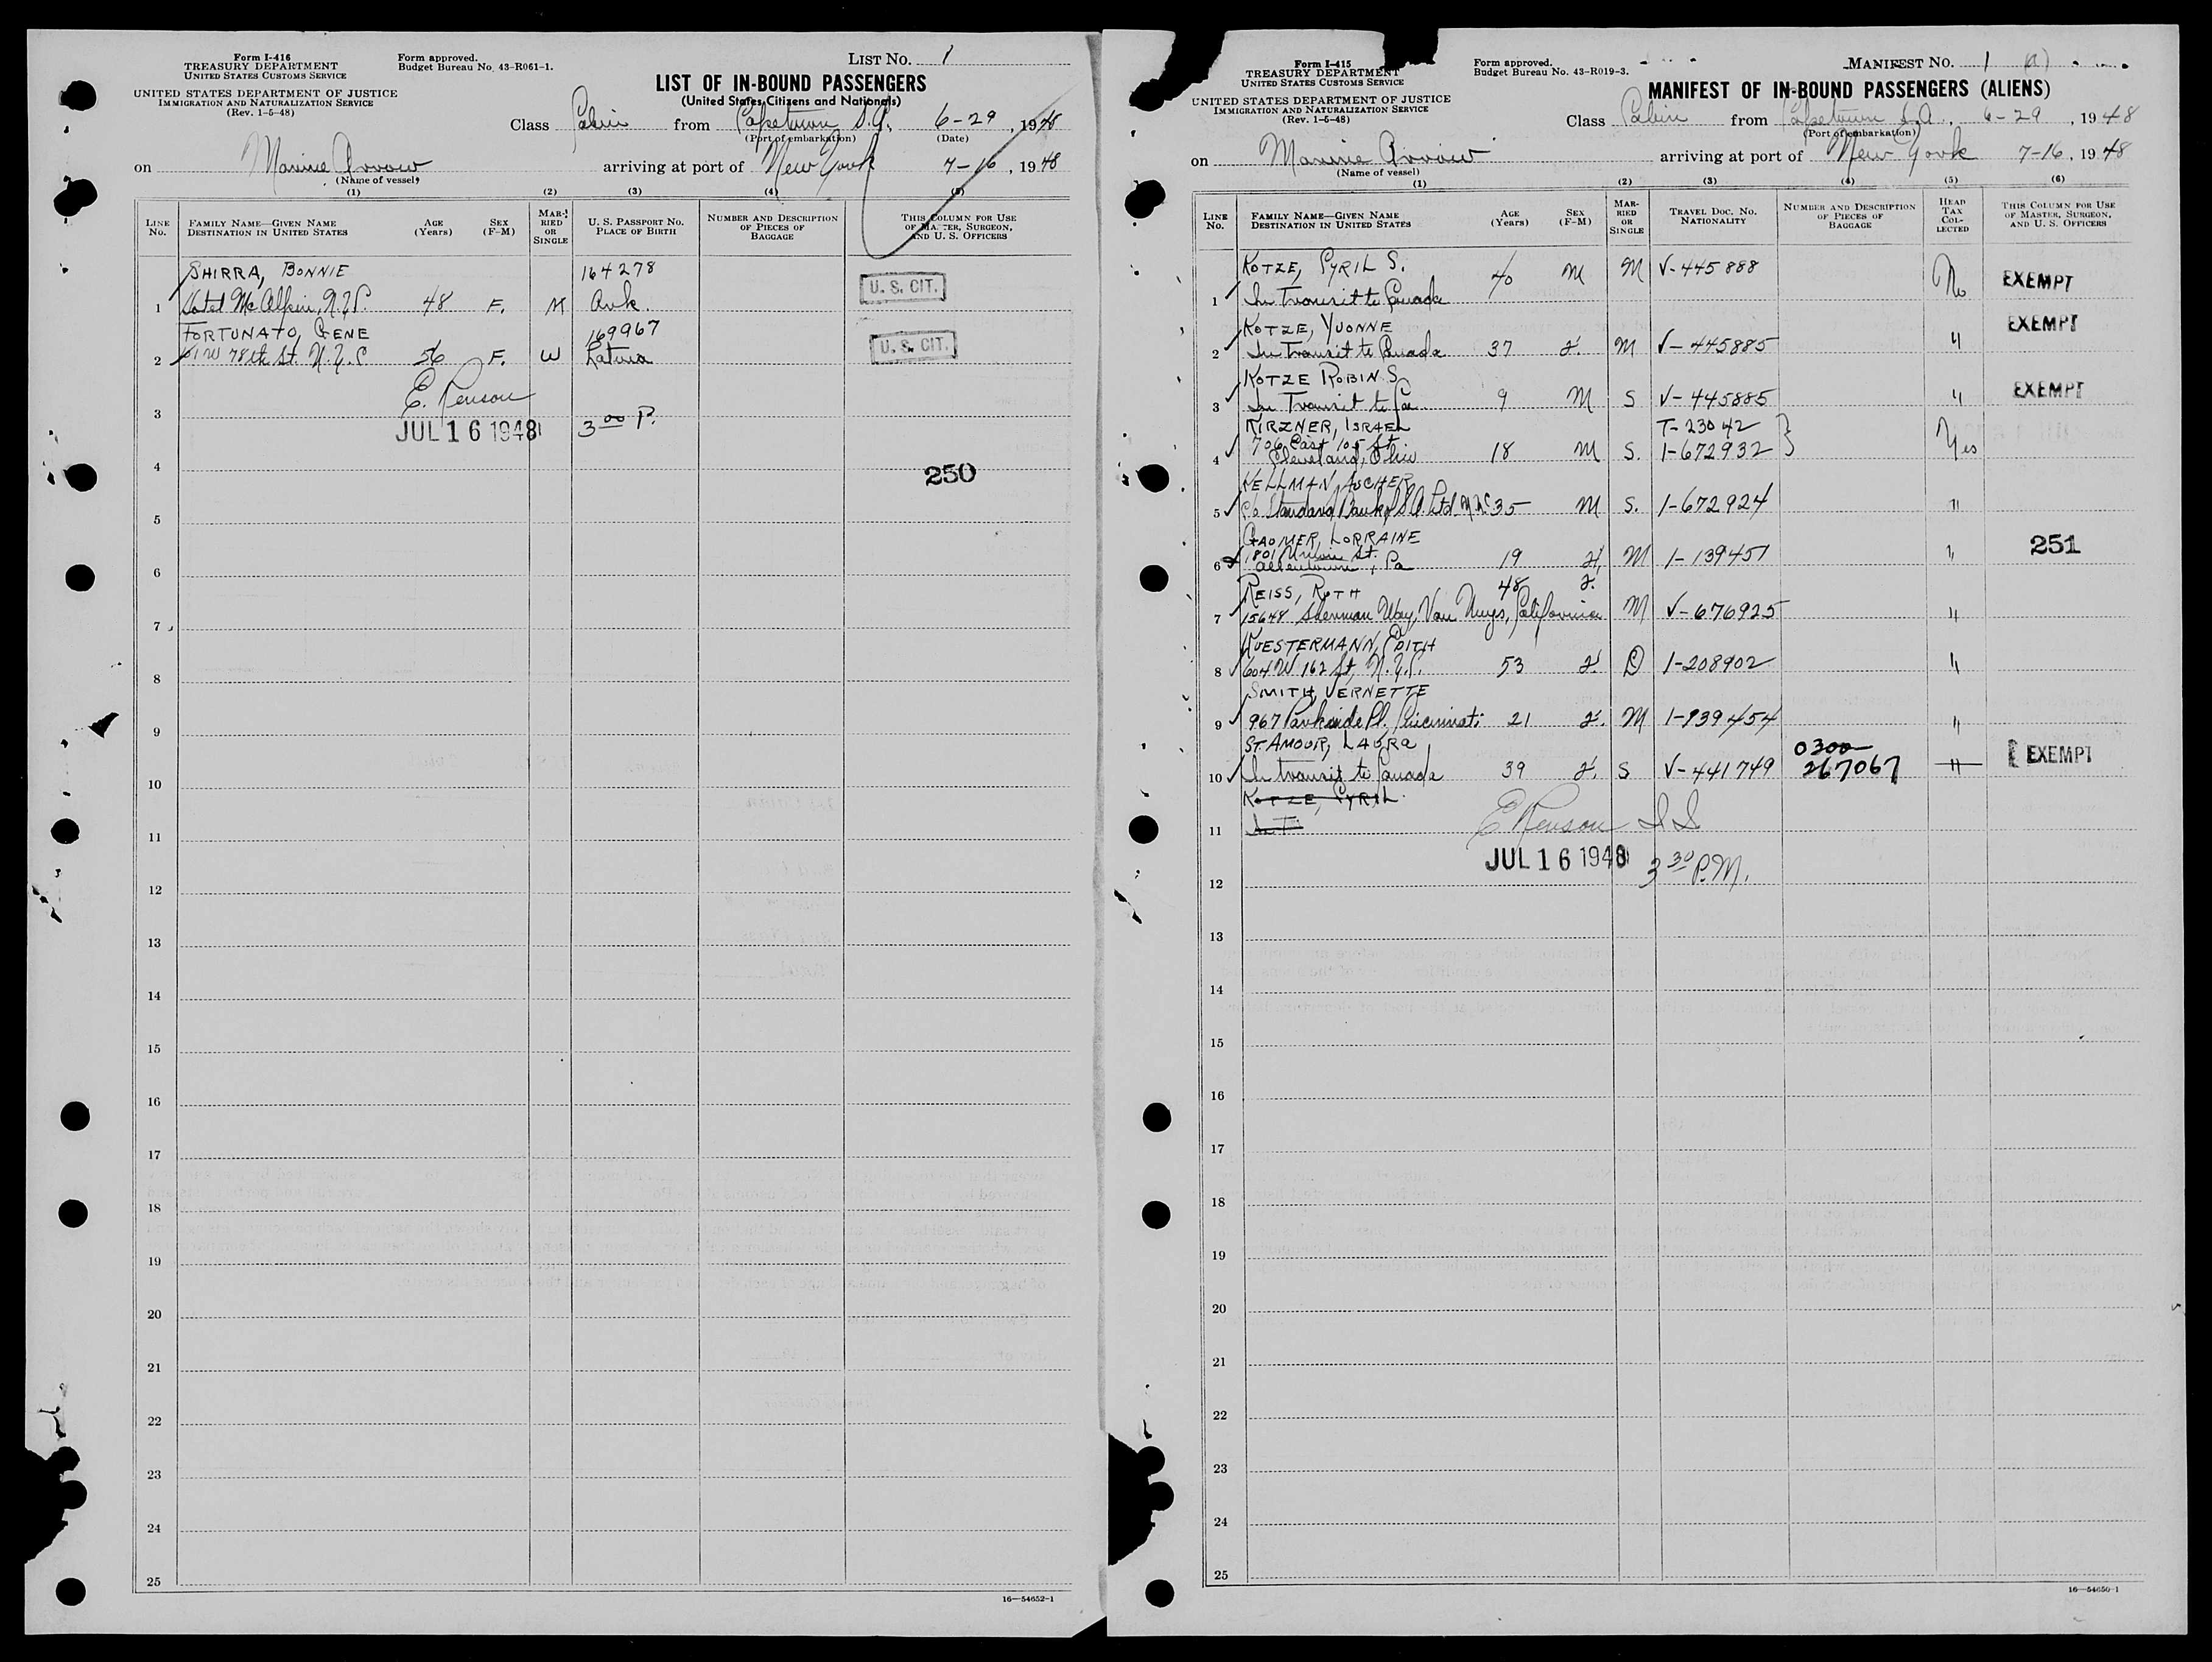 Form I-416
TREASURY DEPARTMENT
UNITED STATES CUSTOMS SERVICE
UNITED STATES DEPARTMENT OF JUSTICE
IMMIGRATION AND NATURALIZATION SERVICE
(Rev. 1-5-48)
Form approved.
Budget Bureau No. 43-R061-1.
LIST NO. 1
LIST OF IN-BOUND PASSENGERS
(United States Citizens and Nationals)
Class Cabin from Capetown S.A., 6-29, 1948
(Port of embarkation) (Date)
on Marine Arrow arriving at port of New York 7-16, 1948
(Name of vessel)
(1) (2) (3) (4) (5)
LINE No. FAMILY NAME—GIVEN NAME DESTINATION IN UNITED STATES AGE (Years) SEX (F-M) MARRIED OR SINGLE U. S. PASSPORT NO. PLACE OF BIRTH NUMBER AND DESCRIPTION OF PIECES OF BAGGAGE THIS COLUMN FOR USE OF MASTER, SURGEON, AND U. S. OFFICERS
SHIRRA, BONNIE 164278
1 Hotel McAlpin, N.Y.C. 48 F. M Ark. U. S. CIT.
FORTUNATO, GENE 169967
2 W 78th St. N.Y.C 56 F. W Latvia U. S. CIT.
E. Renson
3
JUL 16 1948 3 00 P.
4 250
5
6
7
8
9
10
11
12
13
14
15
16
17
18
19
20
21
22
23
24
25
16—54652-1
Form I-415
TREASURY DEPARTMENT
UNITED STATES CUSTOMS SERVICE
UNITED STATES DEPARTMENT OF JUSTICE
IMMIGRATION AND NATURALIZATION SERVICE
(Rev. 1-5-48)
Form approved.
Budget Bureau No. 43-R019-3.
MANIFEST NO. 1 (a)
MANIFEST OF IN-BOUND PASSENGERS (ALIENS)
Class Cabin from Capetown S.A., 6-29, 1948
(Port of embarkation)
on Marine Arrow arriving at port of New York 7-16, 1948
(Name of vessel)
(1) (2) (3) (4) (5) (6)
LINE No. FAMILY NAME—GIVEN NAME DESTINATION IN UNITED STATES AGE (Years) SEX (F-M) MARRIED OR SINGLE TRAVEL DOC. NO. NATIONALITY NUMBER AND DESCRIPTION OF PIECES OF BAGGAGE HEAD TAX COLLECTED THIS COLUMN FOR USE OF MASTER, SURGEON, AND U. S. OFFICERS
KOTZE, CYRIL S. 40 M M V-445888 No EXEMPT
1 In Transit to Canada
KOTZE, YVONNE EXEMPT
2 In Transit to Canada 37 F. M V-445885 "
KOTZE ROBIN S EXEMPT
3 In Transit to Ca. 9 M S V-445885 "
KIRZNER, ISRAEL T-23042
706 East 105 St
4 Cleveland, Ohio 18 M S. I-672932 Yes
KELLMAN, ASCHER
5 c/o Standard Bank of S.A. Ltd. N.Y.C 35 M S. I-672924 "
GAOMER, LORRAINE 251
1801 Union St.
6 Allentown, Pa 19 F. M I-139451 "
REISS, RUTH 48 F.
7 15644 Sherman Way, Van Nuys, California M V-676925 "
WESTERMANN, EDITH
8 604 W 162 St, N.Y.C. 53 F. D I-208902 "
SMITH, VERNETTE
9 967 Parkside Pl. Cincinnati 21 F. M I-139454 "
ST. AMOUR, LAURA 0300
10 In transit to Canada 39 F. S V-441749 267067 " EXEMPT
KOTZE, CYRIL.
11 In T E Renson I I
JUL 16 1948 3 30 P.M.
12
13
14
15
16
17
18
19
20
21
22
23
24
25
16—54650-1